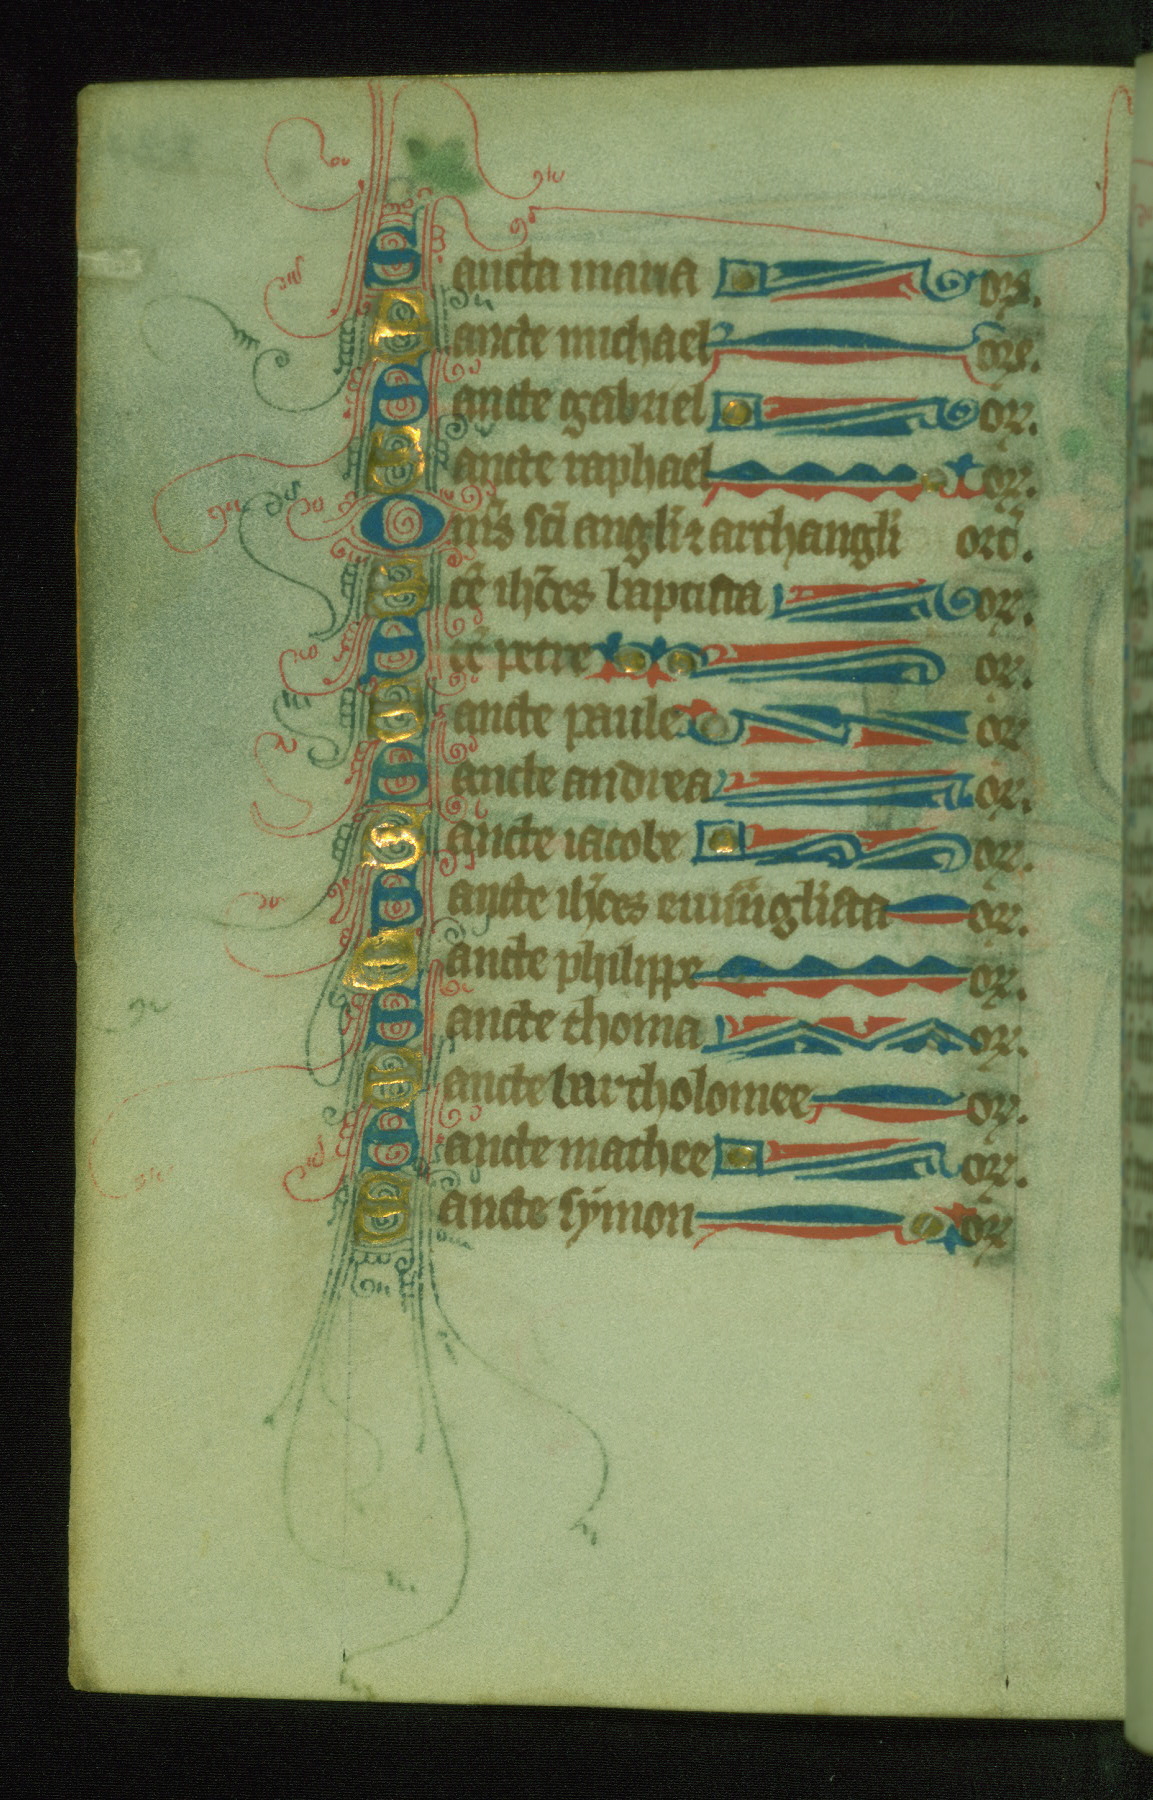 Sancta maria ors.
Sancte michael ore.
Sancte gabriel or.
Sancte raphael or.
Om̄s sc̄i angl̄i ⁊ archangl̄i ord.
Sc̄e ih̄ces baptista or.
Sc̄e petre or.
Sancte paule or
Sancte andrea or.
Sancte iacobe or.
Sancte ih̄ces euuāglista or.
Sancte philippe or.
Sancte thoma or.
Sancte bartholomee or.
Sancte mathee or.
Sancte symon or